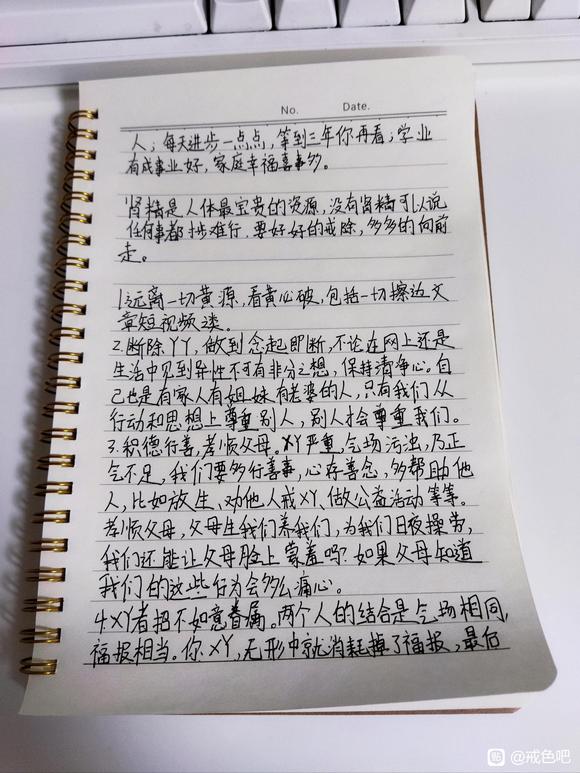 No. Date.
人；每天进步一点点，等到三年你再看；学业
有成事业好，家庭幸福喜事多。
肾精是人体最宝贵的资源，没有肾精可以说
任何事都步难行，要好好的戒除，多多的向前
走。
1.远离一切黄源，看黄心破，包括一切擦边文
章短视频淡。
2.断除YY，做到念起即断，不论在网上还是
生活中见到异性不可有非分之想，保持清净心。自
己也是有家人有姐妹有老婆的人，只有我们从
行动和思想上尊重别人，别人才会尊重我们。
3.积德行善，孝顺父母。XY严重，气场污浊，乃正
气不足，我们要多行善事，心存善念，多帮助他
人，比如放生、劝他人戒XY、做公益活动等等。
孝顺父母，父母生我们养我们，为我们日夜操劳，
我们还能让父母脸上蒙羞吗？如果父母知道
我们的这些行为会多么痛心。
4.XY者招不如意眷属。两个人的结合是气场相同，
福报相当。你XY，无形中就消耗掉了福报，最后
贴 @戒色吧